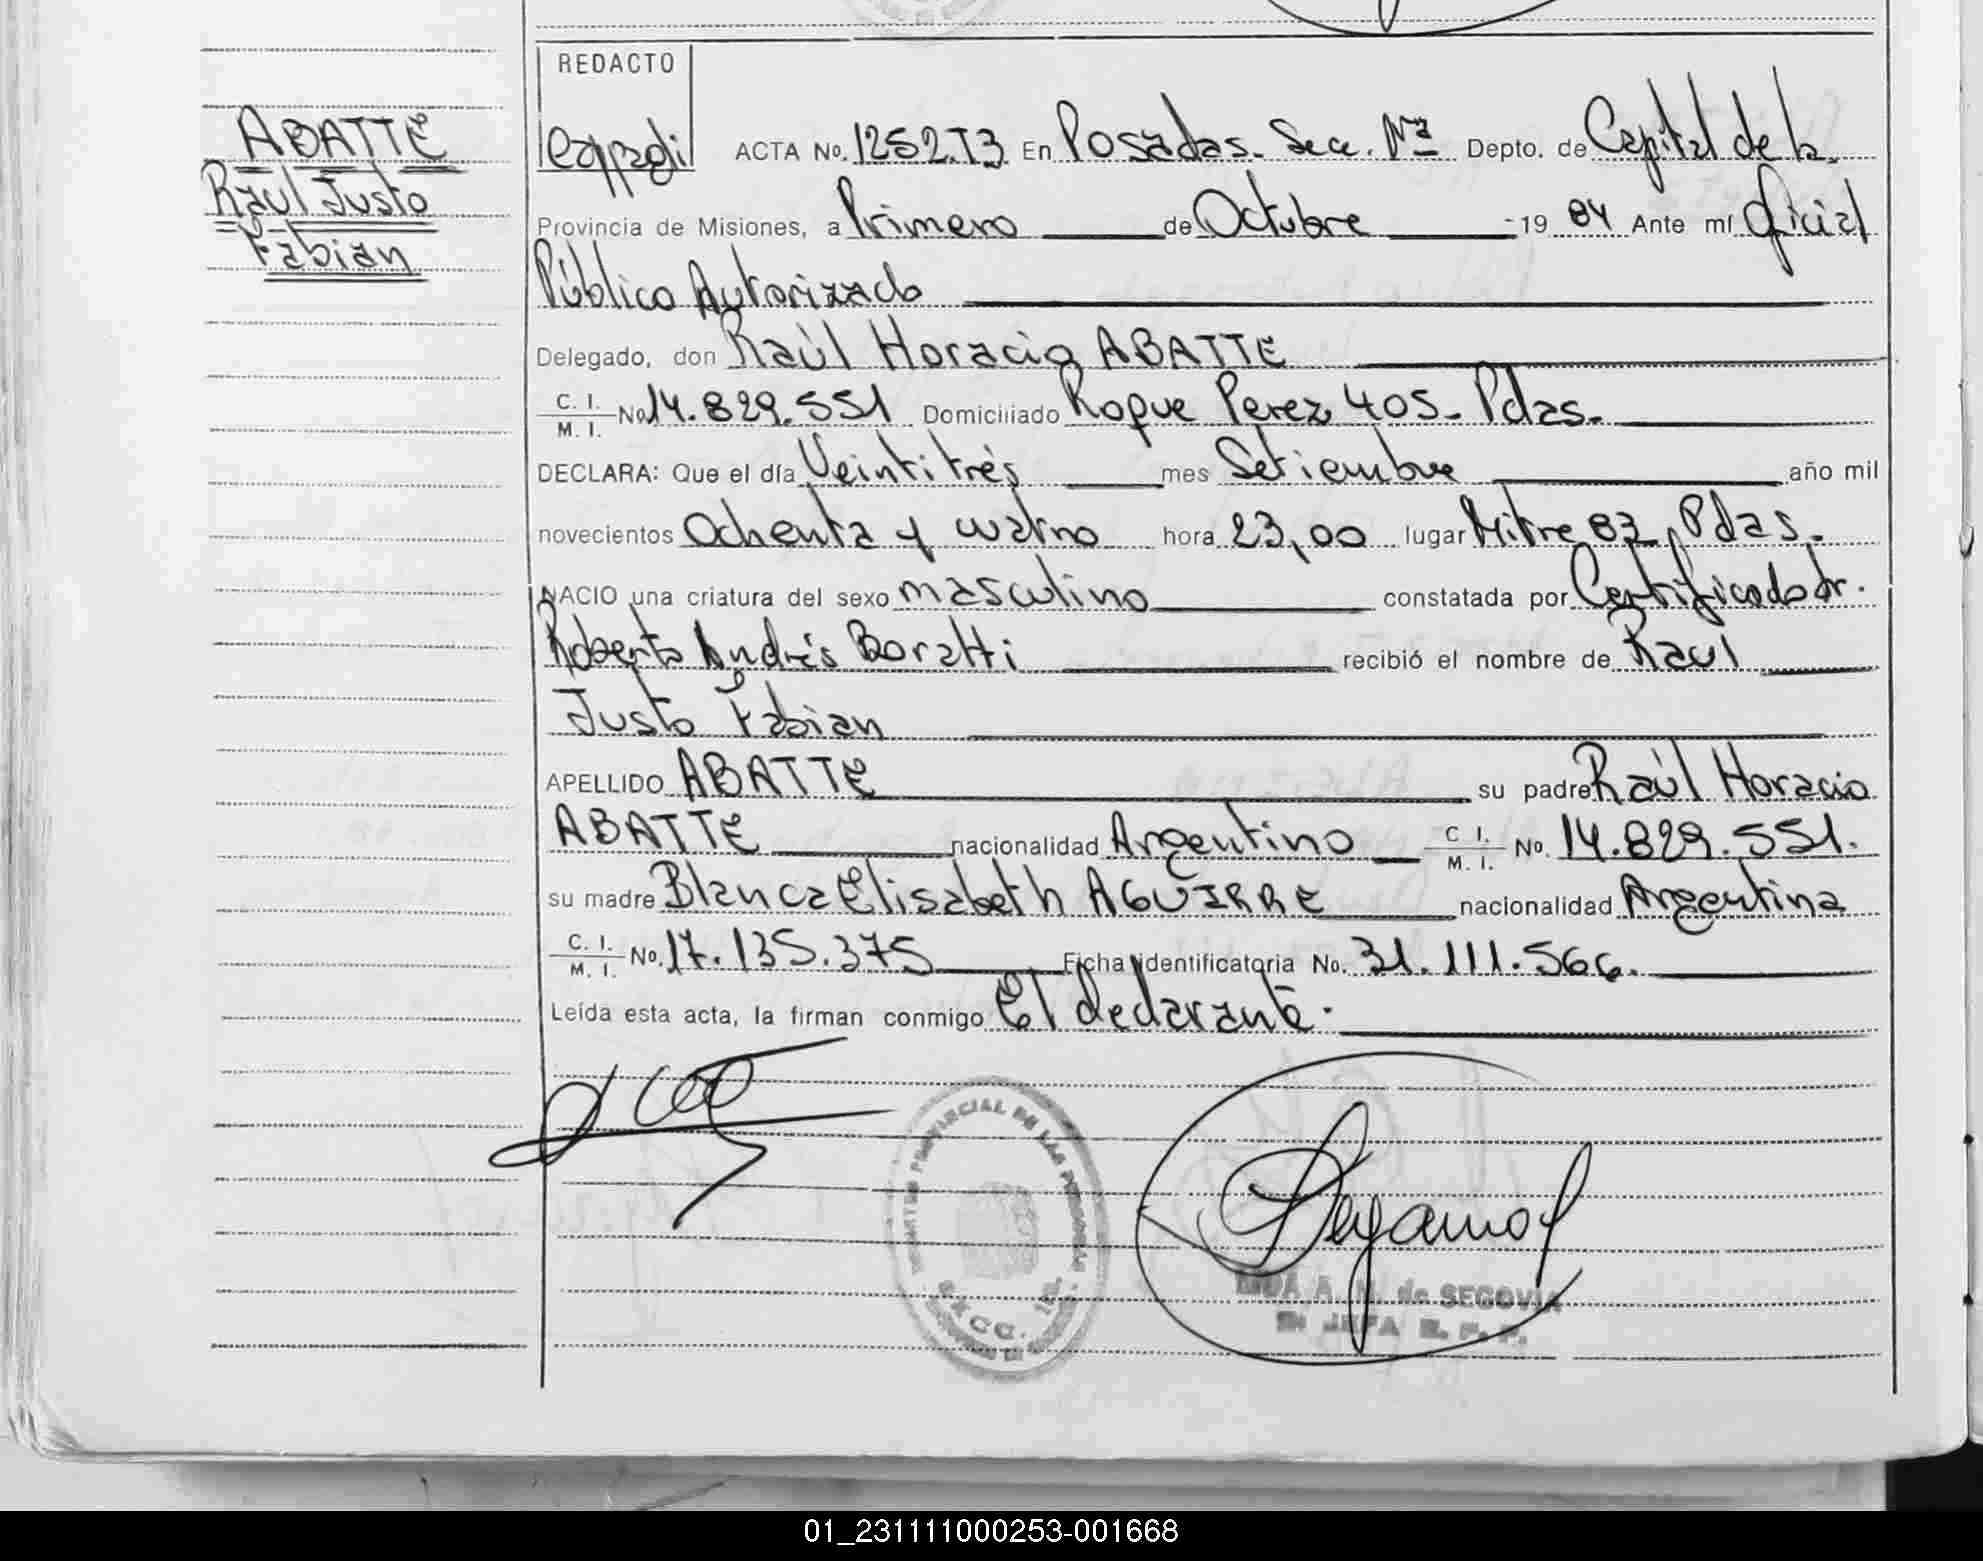 REDACTO
ABATTE
Raul Justo
Fabian
ACTA No. 1252.T3 En Posadas. Secc. Depto. de Capital de la
Provincia de Misiones, a Primero de Octubre -19 84 Ante mí Oficial
Público Autorizado
Delegado, don Raúl Horacio ABATTE
C. I.
M. I. No 14.829.551 Domiciliado Roque Perez 405- Pdas-
DECLARA: Que el día Veintitrés mes Setiembre año mil
novecientos Ochenta y cuatro hora 23,00 lugar Mitre 83 Pdas.
NACIO una criatura del sexo masculino constatada por Certificado dr.
Roberto Andrés Boratti recibió el nombre de Raul
Justo Fabian
APELLIDO ABATTE su padre Raúl Horacio
ABATTE nacionalidad Argentino C. I.
M. I. No. 14.829.551.
su madre Blanca Elisabeth AGUIRRE nacionalidad Argentina
C. I.
M. I. No. 17.135.375 Ficha identificatoria No. 31.111.566.
Leída esta acta, la firman conmigo El declarante.
PROVINCIAL DE LAS PERSONAS
A. N. de SEGOVIA
JEFA
01_231111000253-001668